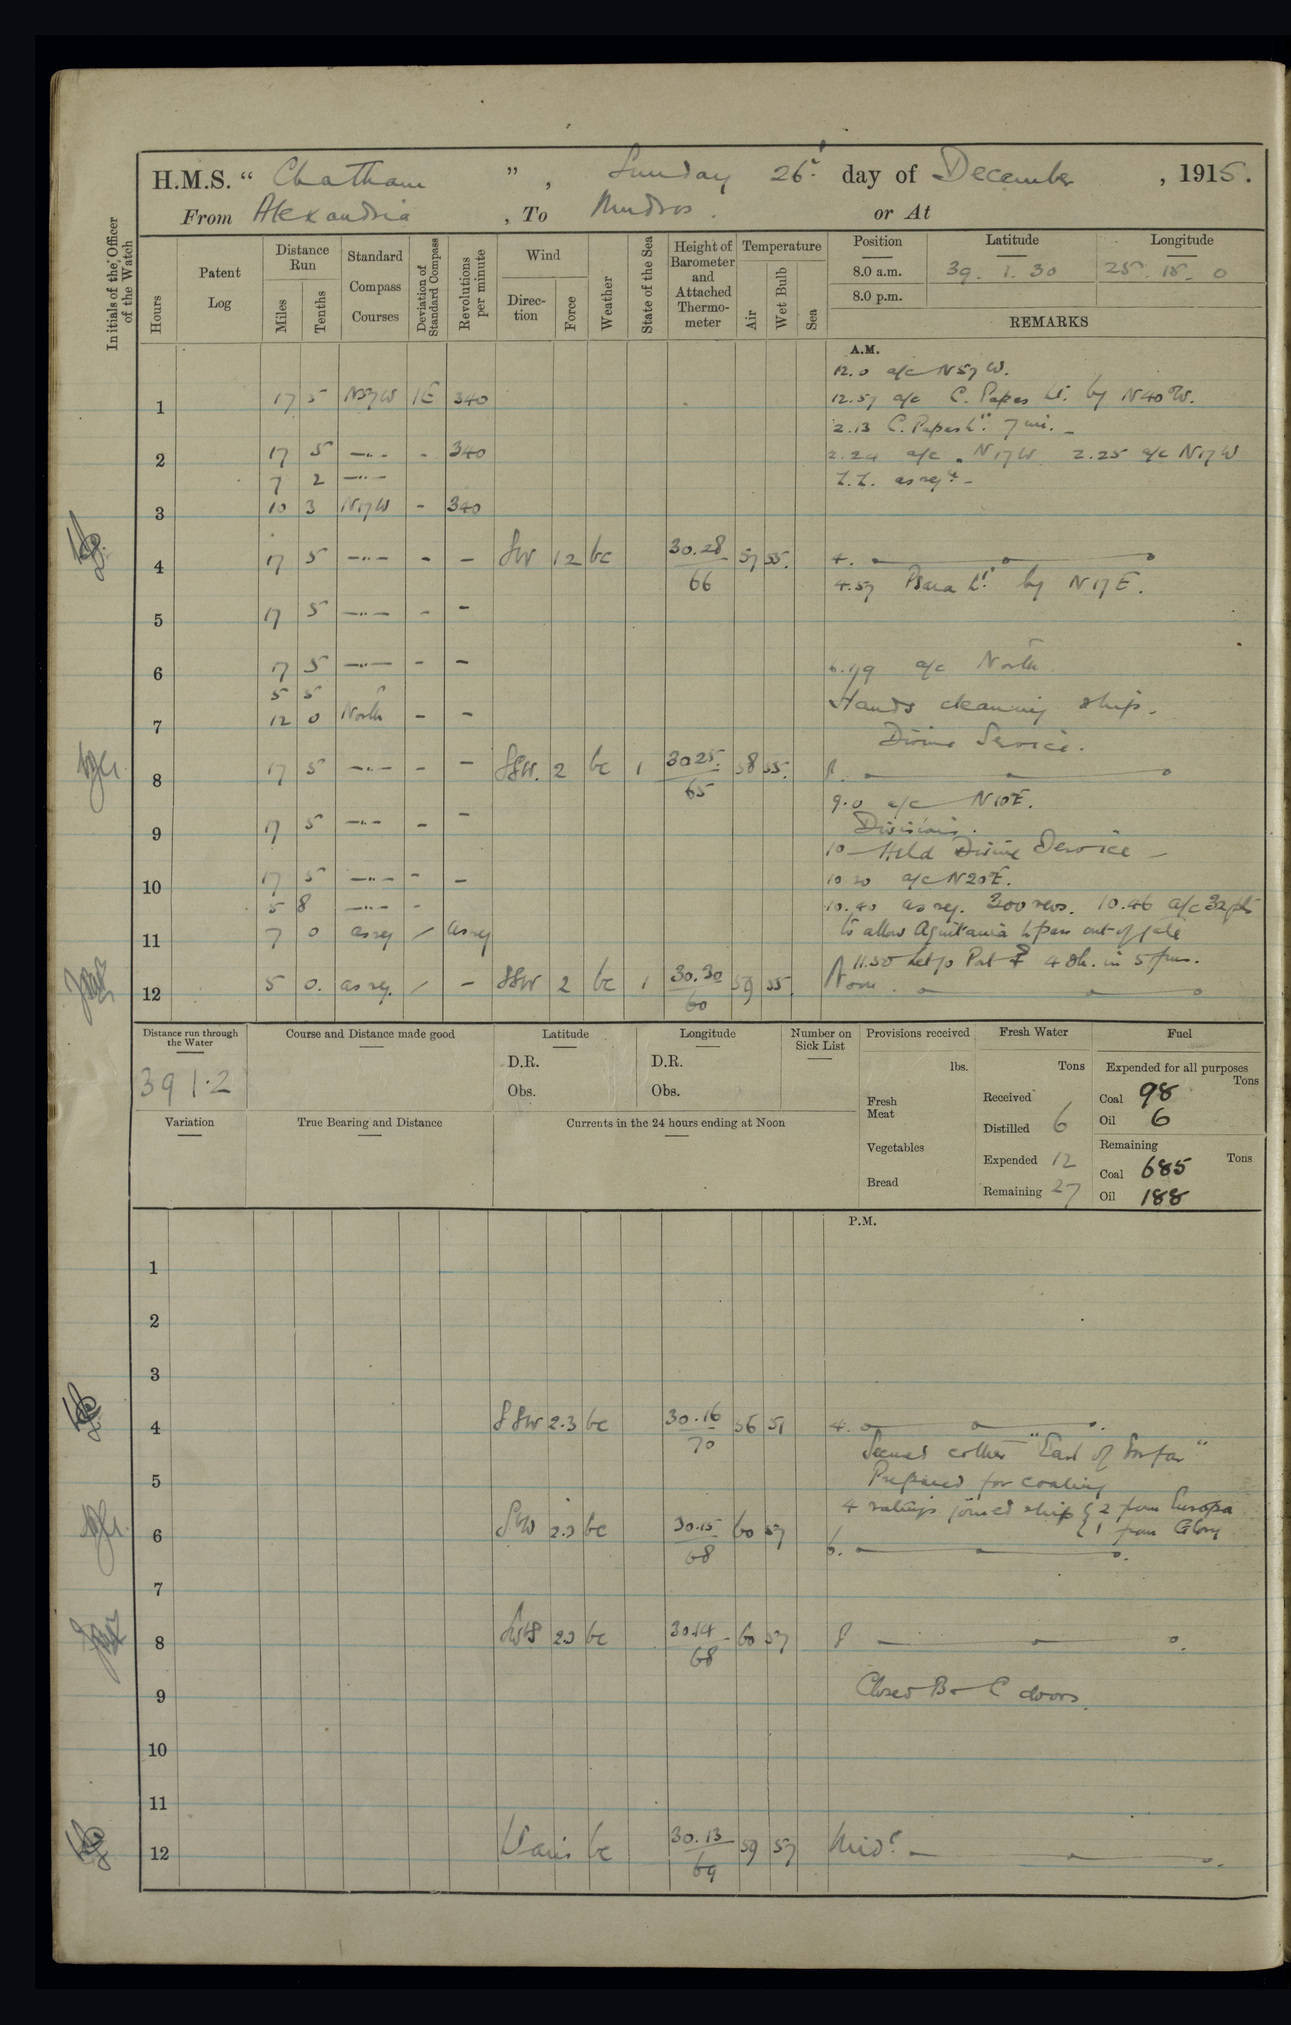 H.M.S. “ Chatham ” , Sunday 26th day of December , 1915.
From Alexandria , To Mudros. or At
Initials of the Officer of the Watch
Hours
Patent Log
Distance Run
Miles
Tenths
Standard Compass Courses
Deviation of Standard Compass
Revolutions per minute
Wind
Direction
Force
Weather
State of the Sea
Height of Barometer and Attached Thermometer
Temperature
Air
Wet Bulb
Sea
Position Latitude Longitude
8.0 a.m. 39. 1. 30 25. 15. 0
8.0 p.m.
REMARKS
A.M.
12.0 a/c N57W.
1 17 5 N57W 1E 340 12.57 a/c C. Papas Lt. by N40W.
2.13 C. Papas Lt. 7 mi.
2 17 5 —..— - 340 2.24 a/c N17W 2.25 a/c N17W
7 2 —..— Z.Z. as req.
3 10 3 N17W - 340
4 17 5 —..— - - SW 12 bc 30.28 66 57 55. 4.
4.57 Psara Lt. by N17E.
5 17 5 —..— - -
6 17 5 —..— - - a/c North
5 5
7 12 0 North - - Hands cleaning ship.
Divine Service.
8 17 5 —..— - - SSW. 2 bc 1 30.25 65 58 55. 8.
9.0 a/c N10E.
9 17 5 —..— - - Divisions.
10 Held Divine Service
10 17 5 —..— - - 10.20 a/c N20E.
5 8 —..— - 10.40 as req. 300 revs. 10.46 a/c 32pts
11 7 0 as req / as req to allow Aquitania to pass out of gate
11.50 Let go Port 4 sh. in 5 fms.
12 5 0. as req. / - SSW 2 bc 1 30.30 60 59 55. Noon.
Distance run through the Water
391.2
Course and Distance made good
Latitude
D.R.
Obs.
Longitude
D.R.
Obs.
Number on Sick List
Provisions received
lbs.
Fresh Meat
Vegetables
Bread
Fresh Water
Tons
Received
Distilled 6
Expended 12
Remaining 27
Fuel
Expended for all purposes
Tons
Coal 98
Oil 6
Remaining
Tons
Coal 685
Oil 188
Variation
True Bearing and Distance
Currents in the 24 hours ending at Noon
P.M.
1
2
3
4 SSW 2.3 bc 30.16 70 56 51 4.
Secured collier "Earl of Forfar"
5 Prepared for coaling
4 ratings joined ship { 2 from Europa
{ 1 from Glory
6 SW 2.3 bc 30.15 68 60 57 6.
7
8 2.3 bc 30.14 68 60 57 8
9 Closed B & C doors.
10
11
12 Varis bc 30.13 69 59 57 Midt.